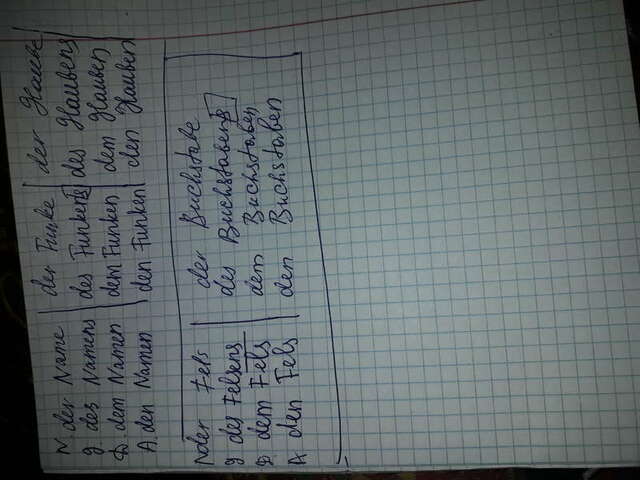 N. der Name der Funke der Glaube
G des Namens des Funkens des Glaubens
D. dem Namen dem Funken dem Glauben
A. den Namen den Funken den Glauben
N der Fels der Buchstabe
G des Felsens des Buchstabens
D dem Fels dem Buchstaben
A den Fels den Buchstaben